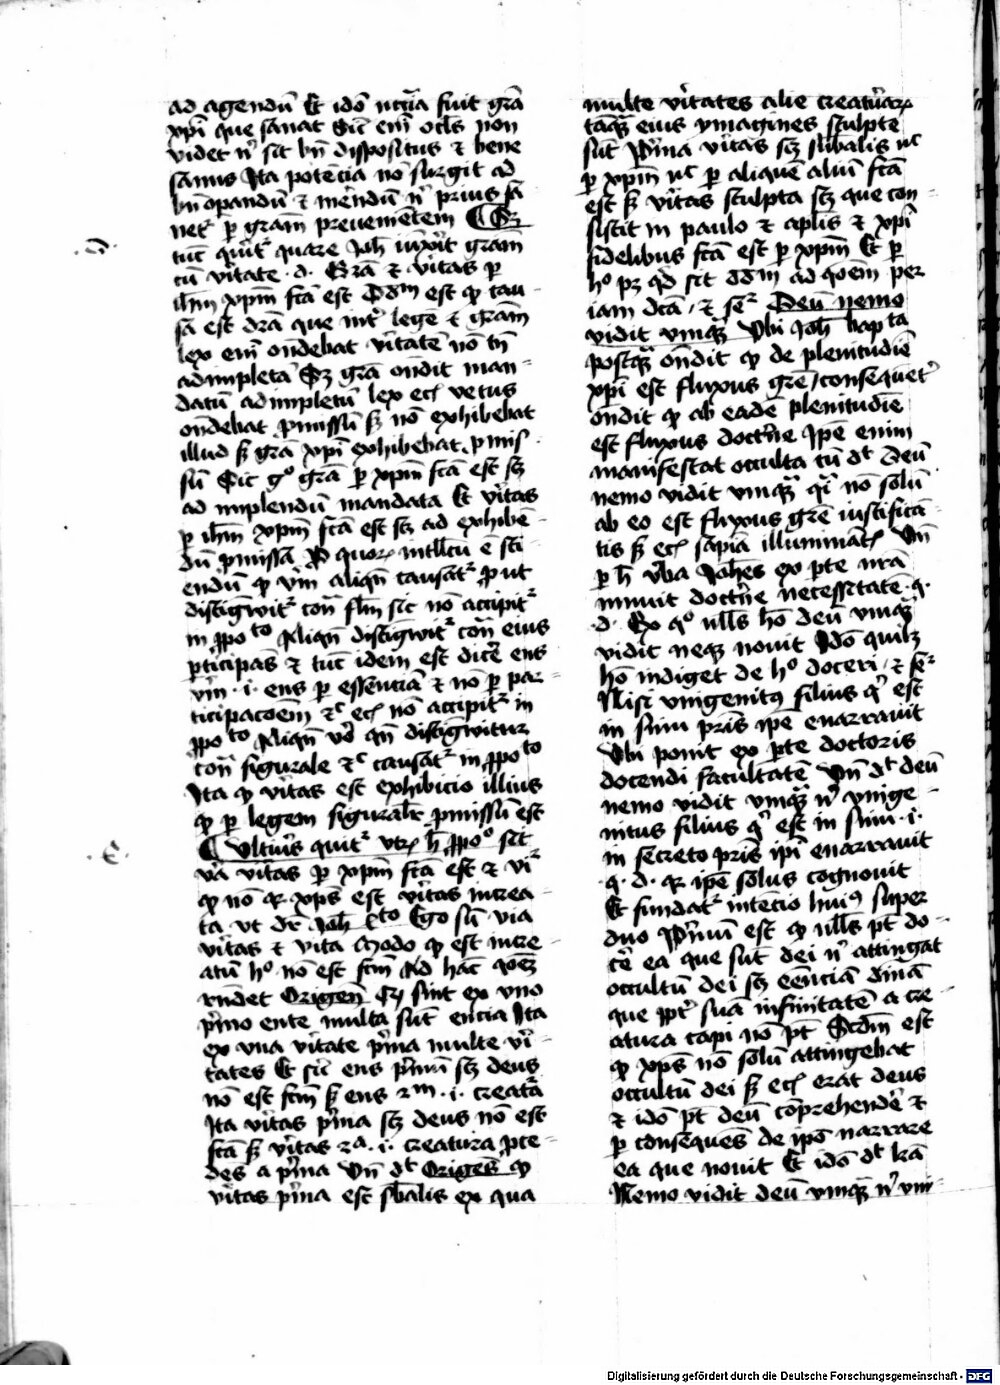 ad agendū Et idō nccīa fuit grā
xpī que sanat Sic enī ocls non
videt nͥ sit bn̄ dispositus ⁊ bene
sanus Ita potēcia nō surgit ad
bn̄ opandū ⁊ mērēndū nͥ prius sa
netͬ per grām prevenientem ¶ Sꝫ
.3.
tūc qūitͬ quare Joh̄ iūxit grām
cū vītate .d. Grā ⁊ vītas ꝑ
ihm̄ xpm̄ fcā est Dd̄m est ꝙ cau-
sa est dr̄a que intͬ legē ⁊ grām
lex enī ondebat vītatē nō tn̄
adimpletā Sꝫ grā ondit man-
datū adimpletū lex eciā vetus
ondebat ꝓmissū sꝫ nō exhibebat
illud sꝫ grā xpī exhibebat ꝓmis-
sū Sic gͦ grā ꝑ xpm̄ fcā est sꝫ
ad implendū mandata Et vītas
ꝑ ihm̄ xpm̄ fcā est sꝫ ad exhibē-
dū ꝓmissa Ad quoꝝ intllcū ē sci-
endū ꝙ vm̄ aliqn̄ causatͬ ꝓut
distigwitͬ contͣ flm̄ sic nō accipitͬ
in ꝓpoᵗᵒ Aliqn̄ distigwitͬ contͣ eius
ꝑticipās ⁊ tūc idem est dicē ens
vm̄ .i. ens ꝑ essentiā ⁊ nō ꝑ par-
ticipacoēm ⁊c eciā nō accipitͬ in
ꝓpoᵗᵒ Aliqn̄ vͦ qn̄ distigwitur
contͣ figurale ⁊c causatͬ in ꝓpoᵗᵒ
Ita ꝙ vītas est exhibicio illius
ꝙ ꝑ legem figuralͭ ꝓmissū est
.4.
¶ Ultīus quitͬ utꝝ h̄ ꝓpoᵒ sit
va vītas ꝑ xpm̄ fcā est ⁊ viͬ
ꝙ nō qꝛ xps̄ est vītas increa
ta vt drͬ Joh̄ xᵗᵒ Ego sū via
vītas ⁊ vita Modo ꝙ est incre-
atū hͦ nō est fcm̄ Ad hāc qoēꝫ
rn̄det Origen̄ Sꝫ sint ex vno
pͥmo ente multa sūt encia Ita
ex vna vītate pͥma multe vī-
tates Et sic̄ ens pͥmū sꝫ deus
nō est fcm̄ sꝫ ens 2ᵐ .i. creatͣ
Ita vītas pͥma sꝫ deus nō est
fcā sꝫ vītas 2ᵃ .i. creatura ꝓce-
des a pͥma Vn̄ dt Origēs ꝙ
vītas pͥma est sbālis ex qua
multe vītates alie creatūaꝝ
tāqͣ eius ymagines sculpte
sūt Pͥma vītas sꝫ sūbalis nͨ
ꝑ xpm̄ nͨ ꝑ aliquē aliū fcā
est sꝫ vītas sculpta sꝫ que con-
sistit in paulo ⁊ aplis ⁊ xpī
fidelibus fcā est ꝑ xpm̄ Et ꝑ
hͦ pꝫ qd̄ sit dd̄m ad qoēm per
iam dcā / ⁊ seͬ Deū nemo
vidit vmqͣ Ubi Joh̄ bapta
postqͣ ondit ꝙ de plenitudiē
xpī est fluxus grē / consequētͬ
ondit ꝙ ab eadē plenitudiē
est fluxus doctͥne Ipē enim
manifestat occulta cū dt Deū
nemo vidit vmqͣ qͥ nō solū
ab eo est fluxus grē iustifica-
tis sꝫ eciā sapīa illuminātꝭ Vn̄
ꝑ h̄ vba Johēs ex ꝑte nr̄a
innuit doctͥne necessitatē .q.
.d. Ex qͦ nlls hō deū vmqͣ
vidit neqꝫ novit Idō quilꝫ
hō indiget de hͦ doceri / ⁊ seͬ
Nisi vnigenitꝰ filius qͥ est
in sinu prīs ipē enarravit
Ubi ponit ex ꝑte doctoris
docendi facultatē Vn̄ dt deū
nemo vidit vmqͣ nͥ vnige-
nitus filius qͥ est in sinu .i.
in secreto prīs ipī enarravit
.q. d. qꝛ ipē solus cognovit
Et fundatͬ intēcio huiꝰ super
duo Pͥmū est ꝙ nlls pt do-
cē ea que sūt dei nͥ attingat
occultū dei sꝫ eēnciā dīnā
que ꝓptͬ suā infinitatē a cre-
atura capi nō pt Scdm̄ est
ꝙ xps̄ nō solū attingebat
occultū dei sꝫ eciā erat deus
⁊ idō pt deū comprehendē ⁊
ꝑ consequēs de ipō narrare
ea que novit Et idō dt lrā
Nemo vidit deū vmqͣ nͥ vni-
Digitalisierung gefördert durch die Deutsche Forschungsgemeinschaft - DFG